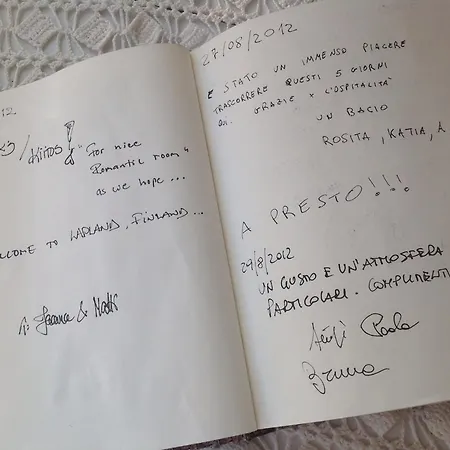 12
/KIITOS! "For nice
Romantic room"
as we hope ...
LCOME TO LAPLAND, FINLAND...
& Matti
27/08/2012
E STATO UN IMMENSO PIACERE
TRASCORRERE QUESTI 5 GIORNI
QUI. GRAZIE X L'OSPITALITÀ
UN BACIO
ROSITA, KATIA, A
A PRESTO!!!
29/8/2012
UN GUSTO E UN'ATMOSFERA
PARTICOLARI. COMPLIMENTI
Paola
Bruna